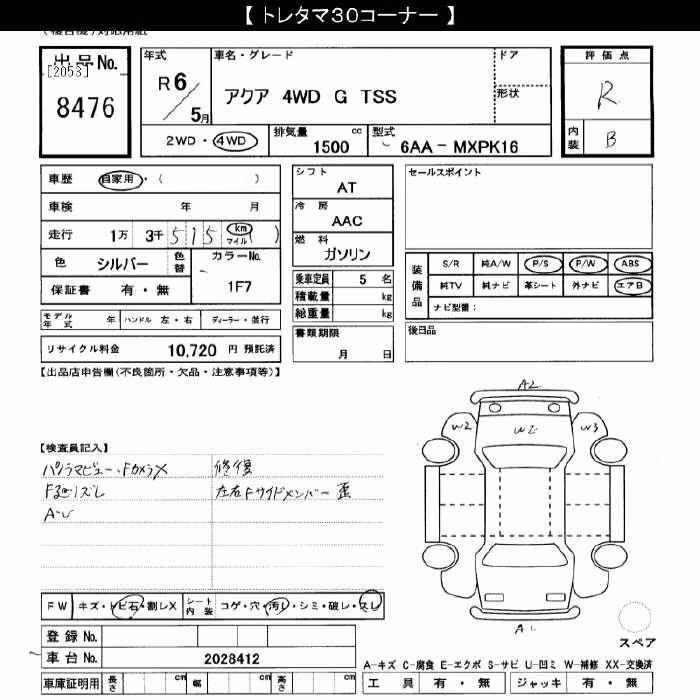 【 トレタマ30コーナー 】
出品No.
[2053]
8476
年式
R 6
5月
車名・グレード
アクア 4WD G TSS
ドア
形状
評価点
R
内装
B
2WD・4WD
排気量 cc
1500
型式
6AA - MXPK16
車歴 自家用・( )
車検 年 月
走行 1万 3千 515 km マイル )
色 シルバー
色替
カラーNo.
1F7
保証書 有・無
モデル年式 年
ハンドル 左・右
ディーラー・並行
リサイクル料金 10,720 円 預託済
シフト
AT
冷房
AAC
燃料
ガソリン
乗車定員 5 名
積載量 kg
総重量 kg
書類期限
月 日
セールスポイント
装備品
S/R 純A/W P/S P/W ABS
純TV 純ナビ 革シート 外ナビ エアB
ナビ型番:
後日品
【出品店申告欄(不良箇所・欠品・注意事項等)】
【検査員記入】
パノラマビュー、FカメラX
修復
左右Fサイドメンバー 歪
A-U
A2
W2
W2
W3
A1
FW キズ・トビ石・割レX
シート内装 コゲ・穴・汚レ・シミ・破レ・スレ
登録No.
車台No. 2028412
車庫証明用 長さ cm 幅 cm 高さ cm
スペア
A-キズ C-腐食 E-エクボ S-サビ U-凹ミ W-補修 XX-交換済
工具 有・無 ジャッキ 有・無